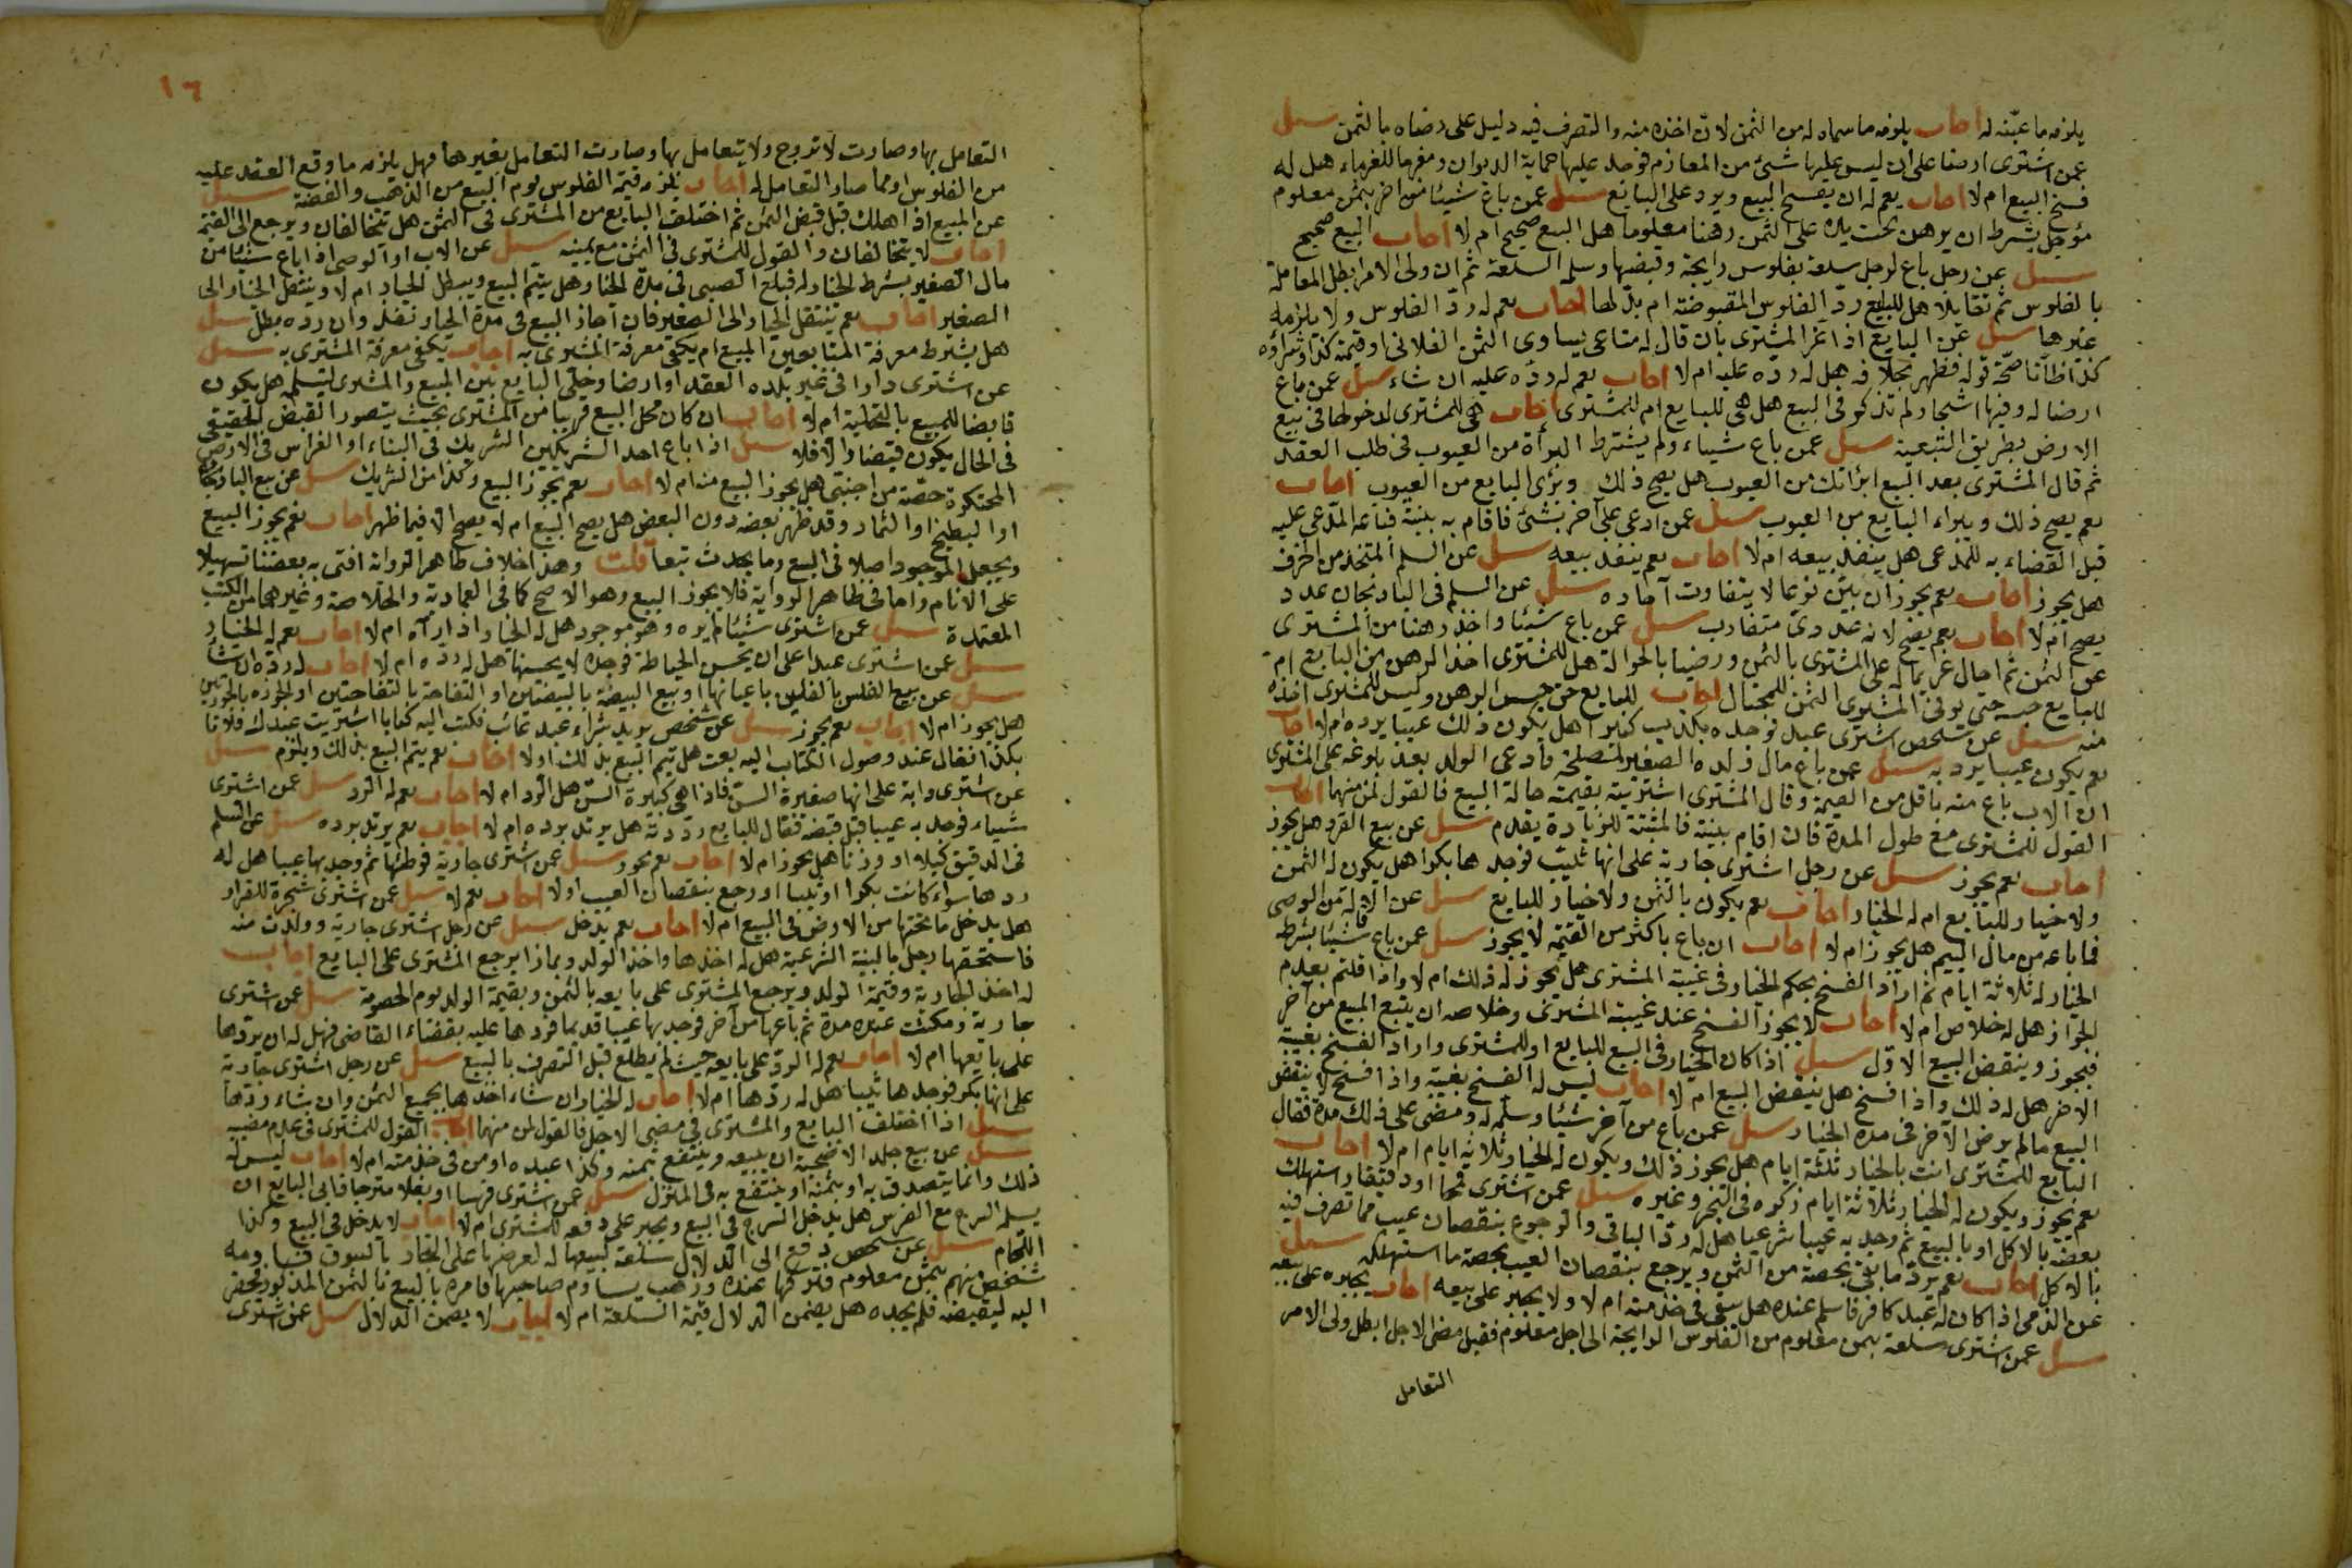 يلزمه ما عيّنه له اجاب يلزمه ما سماه له من الثمن لان اخذه منه والتصرف فيه دليل على رضاه بالثمن سئل
عمن اشترى ارضا على ان ليس عليها شئ من المغارم فوجد عليها حماية الديوان ومغرما للغرماء هل له
فسخ البيع ام لا اجاب نعم له ان يفسخ البيع ويرد على البائع سئل عمن باع شيئا من اخر بثمن معلوم
مؤجل بشرط ان يرهن تحت يده على الثمن رهنا معلوما هل البيع صحيح ام لا اجاب البيع صحيح
سئل عن رجل باع لرجل سلعة بفلوس رايجة وقبضها وسلم السلعة ثم ان ولى الامر ابطل المعاملة
بالفلوس ثم تقايلا هل للبايع ردّ الفلوس المقبوضة ام بدلها اجاب نعم له ردّ الفلوس ولا يلزمه
غيرها سئل عن البايع اذا غر المشترى بان قال له متاعى يساوى الثمن الفلانى او قيمته كذا وشراؤه
كذا ظانا صحّة قوله فظهر بخلافه هل له ردّه عليه ام لا اجاب نعم له ردّه عليه ان شاء سئل عمن باع
ارضا له وفيها اشجار ولم تذكر فى البيع هل هى للبايع ام للمشترى اجاب هى للمشترى لدخولها فى بيع
الارض بطريق التبعية سئل عمن باع شيئا ولم يشترط البرأة من العيوب فى طلب العقد
ثم قال المشترى بعد البيع ابرأتك من العيوب هل يصح ذلك وبرئ البايع من العيوب اجاب
نعم يصح ذلك ويبراء البايع من العيوب سئل عمن ادعى على آخر بشئ فاقام به بينة فباعه المدّعى عليه
قبل القضاء به للمدعى هل ينفذ بيعه ام لا اجاب نعم ينفذ بيعه سئل عن السلم المتخذ من الخزف
هل يجوز اجاب نعم يجوز ان بيّن نوعا لا يتفاوت آحاده سئل عن السلم فى الباذنجان عدد
يصح ام لا اجاب نعم يصح لانه عددى متقارب سئل عمن باع شيئا واخذ رهنا من المشترى
عن الثمن ثم احال غريما له على المشترى بالثمن ورضيا بالحوالة هل للمشترى اخذ الرهن من البايع ام
للبايع حبسه حتى يوفى المشترى الثمن للمحتال اجاب للبايع حق حبس الرهن وليس للمشترى اخذه
منه سئل عن شخص اشترى عبدا فوجده يكذب كثيرا هل يكون ذلك عيبا يرده ام لا اجاب
نعم يكون عيبا يرد به سئل عمن باع مال ولده الصغير لمصلحة فادعى الولد بعد بلوغه على المشترى
ان الاب باع منه باقل من القيمة وقال المشترى اشتريته بقيمته حالة البيع فالقول لمن منهما اجاب
القول للمشترى مع طول المدة فان اقام بينة فالمثبتة للزيادة يقدم سئل عن بيع القرد هل يجوز
اجاب نعم يجوز سئل عن رجل اشترى جارية على انها ثيّب فوجدها بكرا هل يكون له الثمن
ولا خيار للبايع ام له الخيار اجاب نعم يكون بالثمن ولا خيار للبايع سئل عن الاقالة من الوصى
فيما باعه من مال اليتيم هل يجوز ام لا اجاب ان باع باكثر من القيمة لا يجوز سئل عمن باع شيئا بشرط
الخيار له ثلاثة ايام ثم اراد الفسخ بحكم الخيار فى غيبة المشترى هل يجوز له ذلك ام لا واذا قلتم بعدم
الجواز هل له خلاص ام لا اجاب لا يجوز الفسخ عند غيبة المشترى وخلاصه ان يبيع المبيع من آخر
فيجوز وينقض البيع الاوّل سئل اذا كان الخيار فى البيع للبايع او للمشترى واراد الفسخ بغيبة
الاخر هل له ذلك واذا فسخ هل ينقض البيع ام لا اجاب ليس له الفسخ بغيبة واذا فسخ لا ينقض
البيع ما لم يرض الآخر فى مدة الخيار سئل عمن باع من آخر شيئا وسلّمه له ومضى على ذلك مدة فقال
البايع للمشترى انت بالخيار ثلثة ايام هل يجوز ذلك ويكون له الخيار ثلاثة ايام ام لا اجاب
نعم يجوز ويكون له الخيار ثلاثة ايام ذكره فى البحر وغيره سئل عمن اشترى قمحا او دقيقا واستهلك
بعضه بالاكل او بالبيع ثم وجد به عيبا شرعيا هل له ردّ الباقى والرجوع بنقصان عيب مما تصرف فيه
بالاكل اجاب نعم يردّ ما بقى بحصة من الثمن ويرجع بنقصان العيب بحصة ما استهلكه سئل
عن الذمى اذا كان له عبد كافر فاسلم عنده هل يبقى فى خدمته ام لا ولا يجبر على بيعه اجاب يجبره على بيعه
سئل عمن اشترى سلعة بثمن معلوم من الفلوس الرايجة الى اجل معلوم فقبل مضى الاجل ابطل ولى الامر
التعامل
١٦
التعامل بها وصارت لا تروج ولا يتعامل بها وصارت التعامل بغيرها فهل يلزمه ما وقع العقد عليه
من الفلوس او مما صار التعامل له اجاب يلزمه قيمة الفلوس يوم البيع من الذهب والفضة سئل
عن المبيع اذا هلك قبل قبض الثمن ثم اختلف البايع من المشترى فى الثمن هل تتحالفان ويرجع الى القيمة
اجاب لا يتحالفان والقول للمشترى فى الثمن مع يمينه سئل عن الاب او الوصى اذا باع شيئا من
مال الصغير بشرط الخيار له فبلغ الصبى فى مدة الخيار هل يتم البيع ويبطل الخيار ام لا وينتقل الخيار الى
الصغير اجاب نعم ينتقل الخيار الى الصغير فان اجاز البيع فى مدة الخيار نفذ وان رده بطل سئل
هل يشترط معرفة المتبايعين المبيع ام يكفى معرفة المشترى به اجاب يكفى معرفة المشترى به سئل
عن اشترى دارا فى غير بلده العقد او ارضا وخلّى البايع بين المبيع والمشترى ليتسلمه هل يكون
قابضا للمبيع بالتخلية ام لا اجاب ان كان محل البيع قريبا من المشترى بحيث يتصور القبض الحقيقى
فى الحال يكون قبضا والا فلا سئل اذا باع احد الشريكين الشريك فى البناء او الغراس فى الارض
المحتكرة حصّته من اجنبى هل يجوز البيع منه ام لا اجاب نعم يجوز البيع وكذا من الشريك سئل عن بيع الباذنجان
او البطيخ او الثمار وقد ظهر بعضه دون البعض هل يصح البيع ام لا يصح الا فيما ظهر اجاب نعم يجوز البيع
ويجعل الموجود اصلا فى البيع وما يحدث تبعا قلت وهذا خلاف ظاهر الرواية افتى به بعضنا تسهيلا
على الانام واما فى ظاهر الرواية فلا يجوز البيع وهو الاصح كما فى العمادية والخلاصة وغيرهما من الكتب
المعتمدة سئل عمن اشترى شيئا لم يره وهو موجود هل له الخيار اذا رآه ام لا اجاب نعم له الخيار
سئل عمن اشترى عبدا على ان يحسن الخياطة فوجده لا يحسنها هل له ردّه ام لا اجاب له ردّه ان شاء
سئل عن بيع الفلس بالفلسين باعيانها او بيع البيضة بالبيضتين او التفاحة بالتفاحتين او الجوزه بالجوزتين
هل يجوز ام لا اجاب نعم يجوز سئل عن شخص يريد شراء عبد غائب فكتب اليه كتابا اشتريت عبدك فلانا
بكذا فقال عند وصول الكتاب اليه بعت هل يتم البيع بذلك او لا اجاب نعم يتم البيع بذلك ويلزم سئل
عن اشترى دابة على انها صغيرة السن فاذا هى كبيرة السن هل له الرد ام لا اجاب نعم له الرد سئل عمن اشترى
شيئا فوجد به عيبا قبل قبضه فقال للبايع رددته هل يرتد برده ام لا اجاب نعم يرتد برده سئل عن السلم
فى الدقيق كيلا او وزنا هل يجوز ام لا اجاب نعم يجوز سئل عمن اشترى جارية فوطئها ثم وجد بها عيبا هل له
ردها سواء كانت بكرا او ثيبا او رجع بنقصان العيب او لا اجاب نعم لا سئل عمن اشترى شجرة للقرار
هل يدخل ما تحتها من الارض فى البيع ام لا اجاب نعم يدخل سئل عن رجل اشترى جارية وولدت منه
فاستحقها رجل بالبينة الشرعية هل له اخذها واخذ الولد وبماذا يرجع المشترى على البايع اجاب
له اخذ الجارية وقيمة الولد ويرجع المشترى على بايعه بالثمن وبقيمة الولد يوم الخصومة سئل عمن اشترى
جارية ومكثت عنده مدة ثم باعها من آخر فوجد بها عيبا قديما فردها عليه بقضاء القاضى فهل له ان يردها
على بايعها ام لا اجاب نعم له الرد على بايعه حيث لم يطلع قبل التصرف بالبيع سئل عن رجل اشترى جارية
على انها بكر فوجدها ثيبا هل له ردّها ام لا اجاب له الخيار ان شاء اخذها بجميع الثمن وان شاء ردّها
سئل اذا اختلف البايع والمشترى فى مضى الاجل فالقول لمن منهما اجاب القول للمشترى فى عدم مضيه
سئل عن بيع جلد الاضحية ان يبيعه وينتفع بثمنه وكذا عبده او من فى خدمته ام لا اجاب ليس له
ذلك وانما يتصدق به او بثمنه او ينتفع به فى المنزل سئل عمن اشترى فرسا او بغلا مسرجا فابى البايع ان
يسلم السرج مع الفرس هل يدخل السرج فى البيع ويجبر على دفعه للمشترى ام لا اجاب لا يدخل فى البيع وكذا
اللجام سئل عن شخص دفع الى الدلال سلعة ليبيعها له لعرضها على التجار بالسوق فساومه
شخص منهم بثمن معلوم فتركها عنده وذهب يساوم صاحبها فامره بالبيع بالثمن المذكور فحضر
اليه ليقبضه فلم يجده هل يضمن الدلال قيمة السلعة ام لا اجاب لا يضمن الدلال سئل عمن اشترى